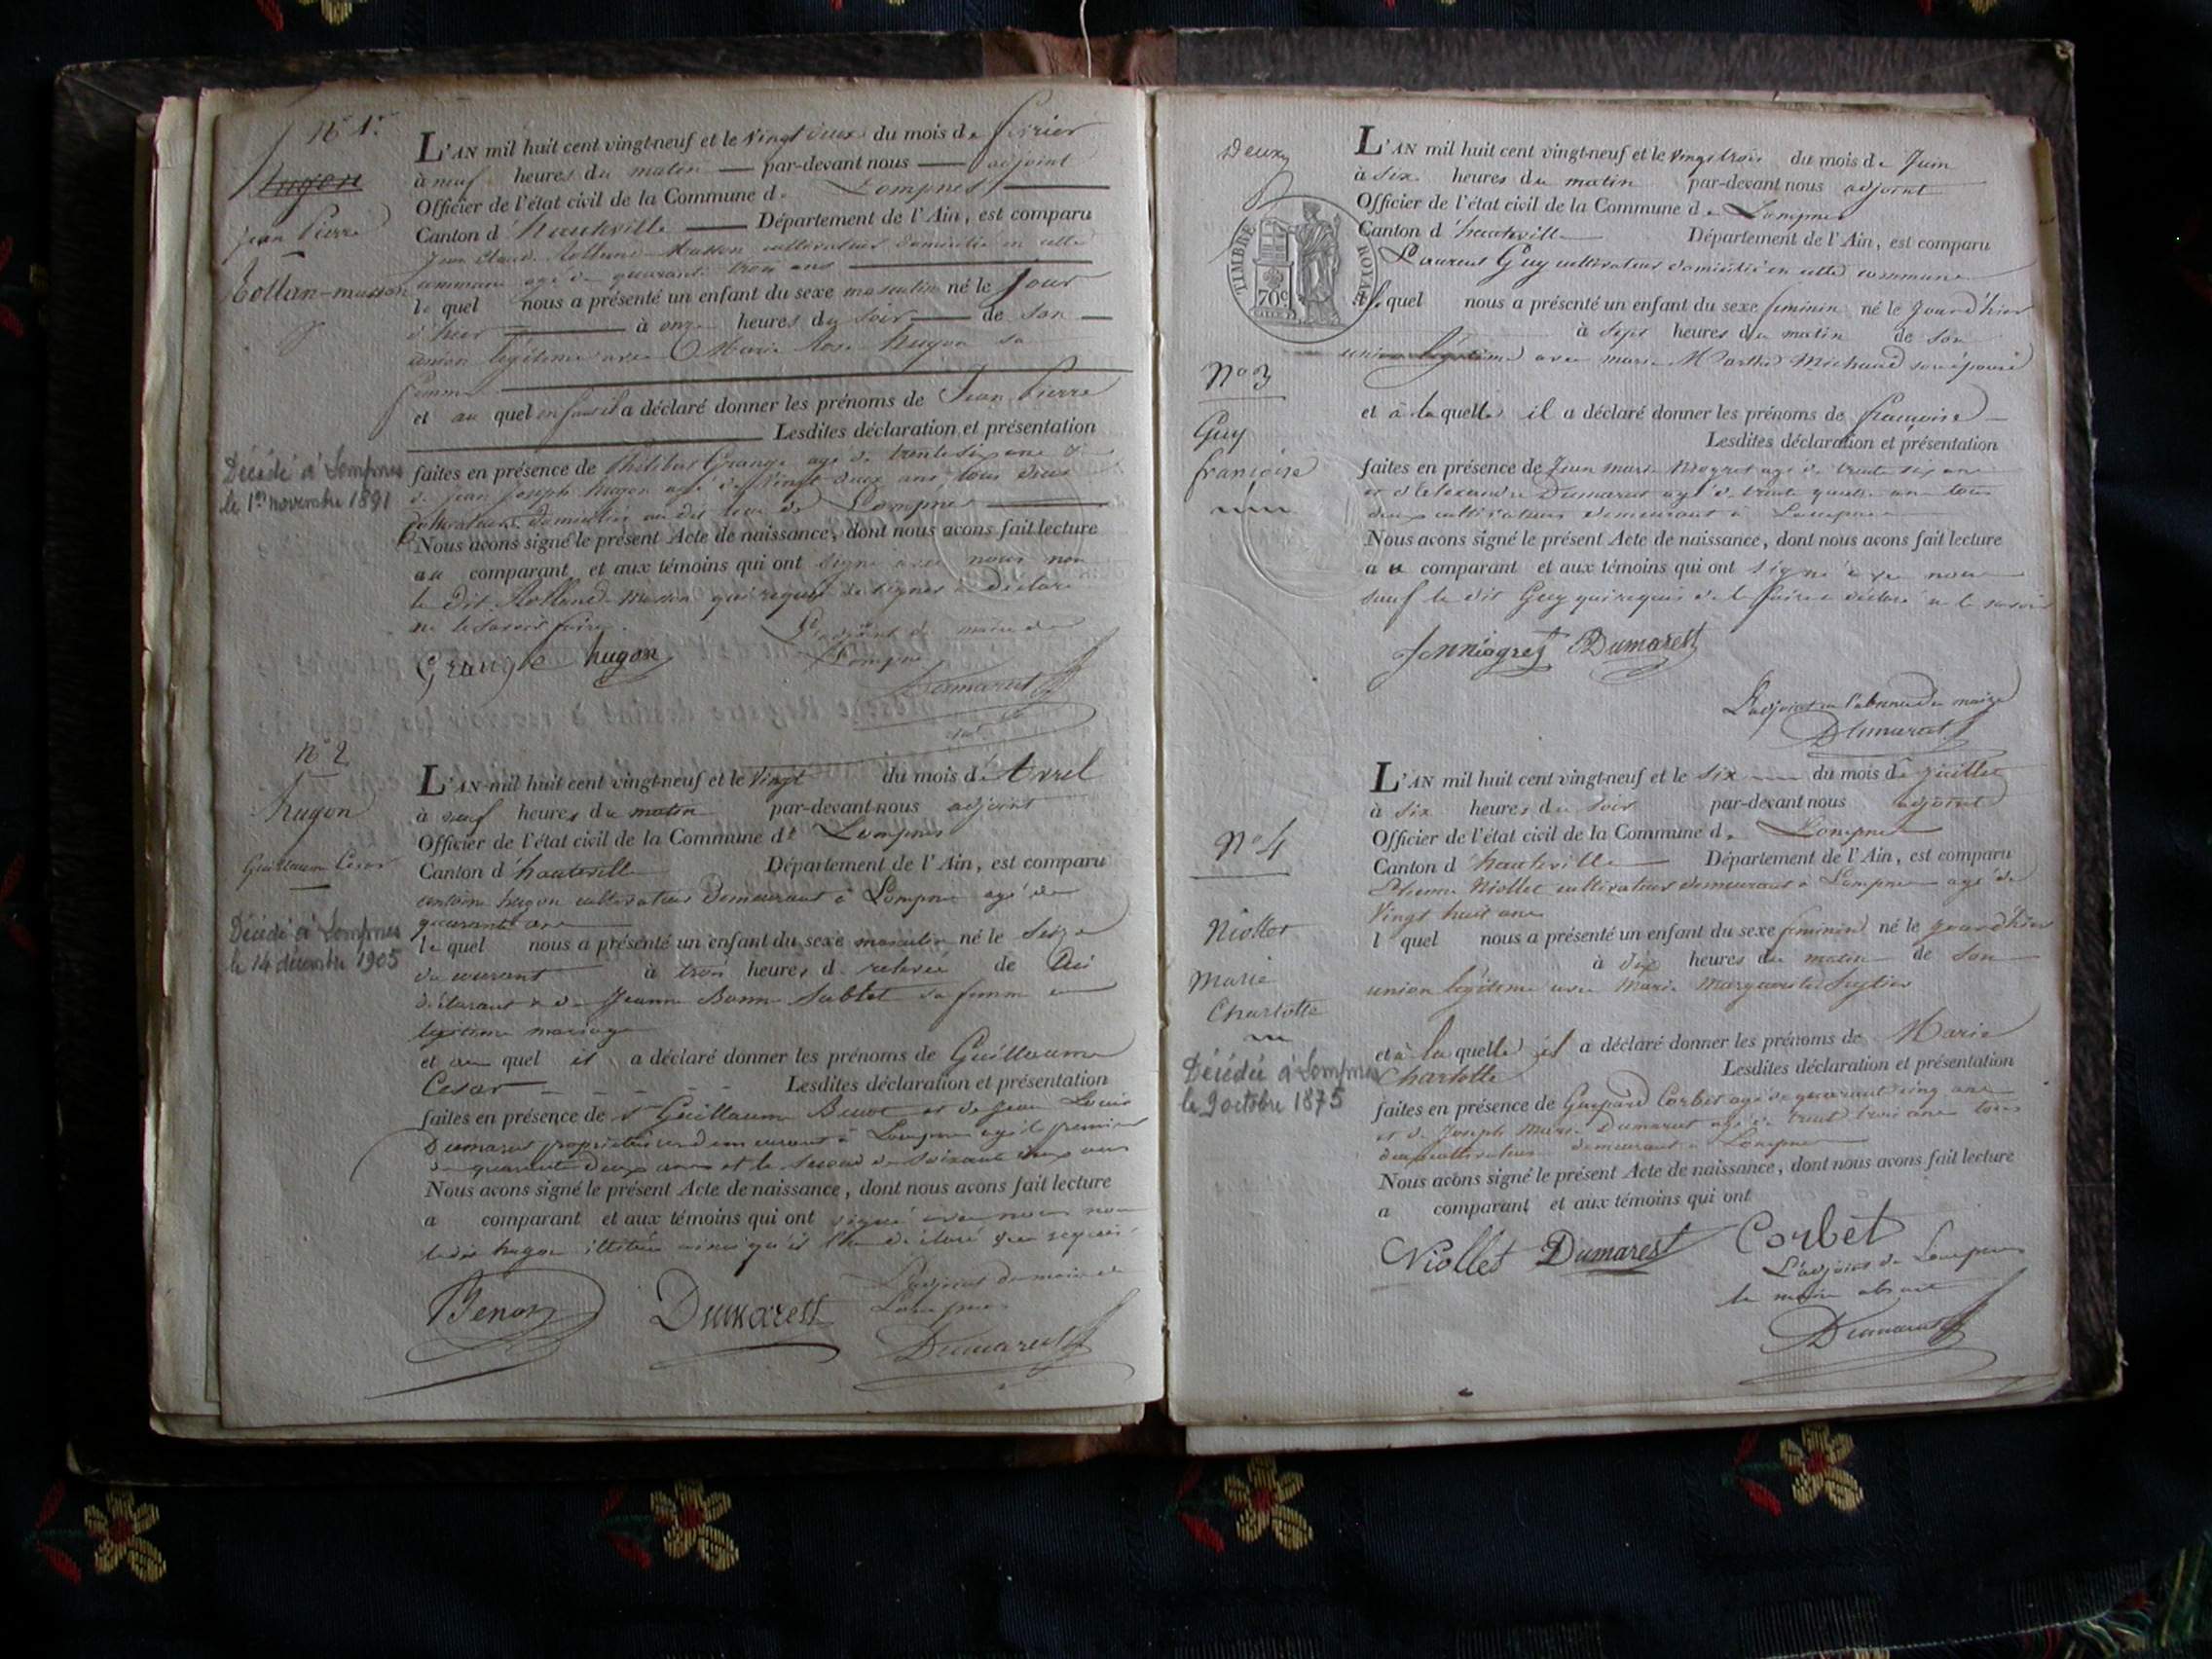 N° 1er
Hugon
Jean Pierre
Rollan-masson
L'AN mil huit cent vingt-neuf et le vingt deux du mois de février
à neuf heures du matin par-devant nous adjoint
Officier de l'état civil de la Commune de Lompnes
Canton d'hauteville Département de l'Ain, est comparu
Jean Claude Rolland-Masson cultivateur domicilié en cette
commune agé de quarante trois ans
le quel nous a présenté un enfant du sexe masculin né le jour
d'hier à onze heures du soir de son
union légitime avec Marie Rose hugon sa
femme
et au quel enfant il a déclaré donner les prénoms de Jean Pierre
Lesdites déclaration et présentation
Décédé à Lompnes
le 1er novembre 1891
faites en présence de Philibert Grange agé de trente six ans &
de Jean Joseph hugon agé de vingt deux ans, tous deux
cultivateurs domiciliés au dit lieu de Lompnes
Nous avons signé le présent Acte de naissance, dont nous avons fait lecture
au comparant et aux témoins qui ont signé avec nous non
le dit Rolland-Masson qui requis de signer a déclaré
ne le savoir faire.
Grange hugon
L'adjoint du maire de
Lompnes
Dumarest
N° 2
hugon
Guillaume Cesar
Décédé à Lompnes
le 14 décembre 1905
L'AN mil huit cent vingt-neuf et le vingt du mois d'Avril
à neuf heures du matin par-devant nous adjoint
Officier de l'état civil de la Commune de Lompnes
Canton d'hauteville Département de l'Ain, est comparu
antoine hugon cultivateur demeurant à Lompnes agé de
quarante ans
le quel nous a présenté un enfant du sexe masculin né le seize
du courant à trois heures de relevée de lui
déclarant & de Jeanne Bonne Sublet sa femme en
légitime mariage
et au quel il a déclaré donner les prénoms de Guillaume
Cesar Lesdites déclaration et présentation
faites en présence de Guillaume et de Jean Louis
Dumarest propriétaires demeurant à Lompnes agé le premier
de quarante deux ans et le second de soixante deux ans
Nous avons signé le présent Acte de naissance, dont nous avons fait lecture
a comparant et aux témoins qui ont signé avec nous non
ledit hugon illitéré ainsi qu'il l'a déclaré de ce requis
Dumarest
L'adjoint du maire de
Lompnes
Dumarest
Deux
TIMBRE ROYAL
70c
N° 3
Guy
françoise
L'AN mil huit cent vingt-neuf et le vingt trois du mois de Juin
à six heures du matin par-devant nous adjoint
Officier de l'état civil de la Commune de Lompnes
Canton d'hauteville Département de l'Ain, est comparu
Laurent Guy cultivateur domicilié en cette commune
le quel nous a présenté un enfant du sexe feminin né le jour d'hier
à sept heures du matin de son
union légitime avec marie Marthe Michaud son épouse
et à la quelle il a déclaré donner les prénoms de françoise
Lesdites déclaration et présentation
faites en présence de Jean marie Niogret agé de trente six ans
et d'Alexandre Dumarest agé de trente quatre ans tous
deux cultivateurs demeurant à Lompnes
Nous avons signé le présent Acte de naissance, dont nous avons fait lecture
au comparant et aux témoins qui ont signé avec nous
sauf le dit Guy qui requis de le faire a déclaré ne le savoir
Jm Niogret Dumarest
L'adjoint en l'absence du maire
Dumarest
N° 4
Niollet
Marie
Charlotte
Décédée à Lompnes
le 9 octobre 1875
L'AN mil huit cent vingt-neuf et le six du mois de juillet
à six heures du soir par-devant nous adjoint
Officier de l'état civil de la Commune de Lompnes
Canton d'hauteville Département de l'Ain, est comparu
Niollet cultivateur demeurant à Lompnes agé de
vingt huit ans
l quel nous a présenté un enfant du sexe feminin né le jour d'hier
à dix heures du matin de son
union légitime avec Marie Marguerite
et à la quelle il a déclaré donner les prénoms de Marie
Charlotte Lesdites déclaration et présentation
faites en présence de Gaspard Corbet agé de quarante cinq ans
et de Joseph Marie Dumarest agé de trente trois ans tous
deux cultivateurs demeurant à Lompnes
Nous avons signé le présent Acte de naissance, dont nous avons fait lecture
a comparant et aux témoins qui ont
Niollet Dumarest Corbet
L'adjoint de Lompnes
le maire absent
Dumarest